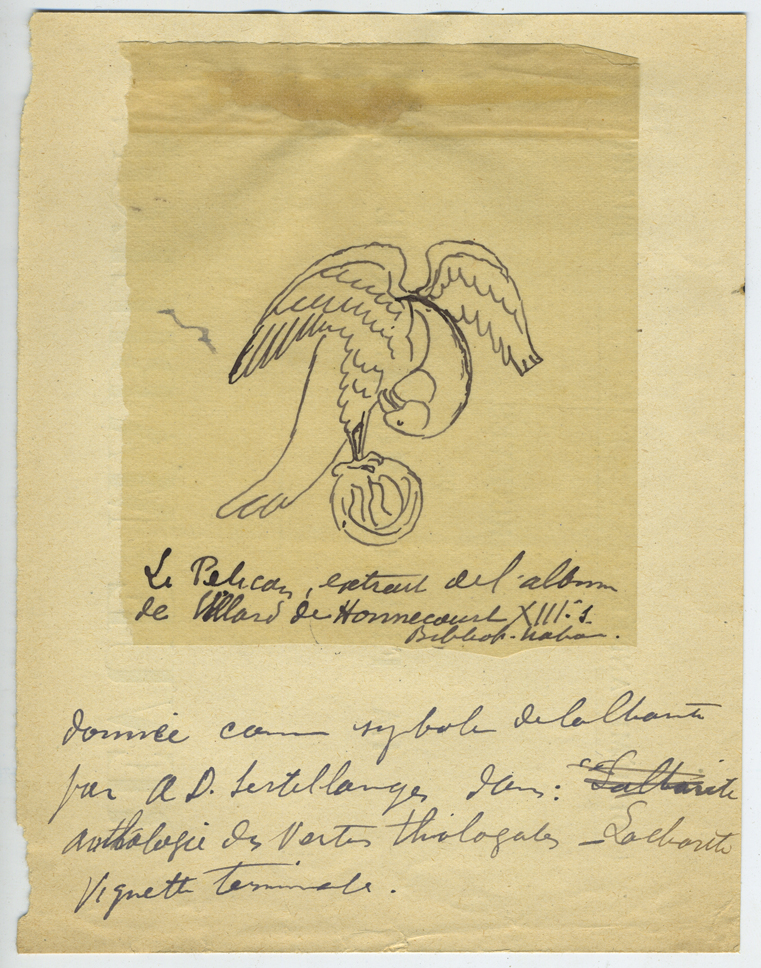 Le Pelican, extrait de l'album
de Villard de Honnecourt XIIIe s.
Biblioth. Nation.
donnée comme sybole de la Charité
par A D. Sertillanges dans : "La Charité
anthologie des Vertus théologales _ La charité
Vignette terminale.